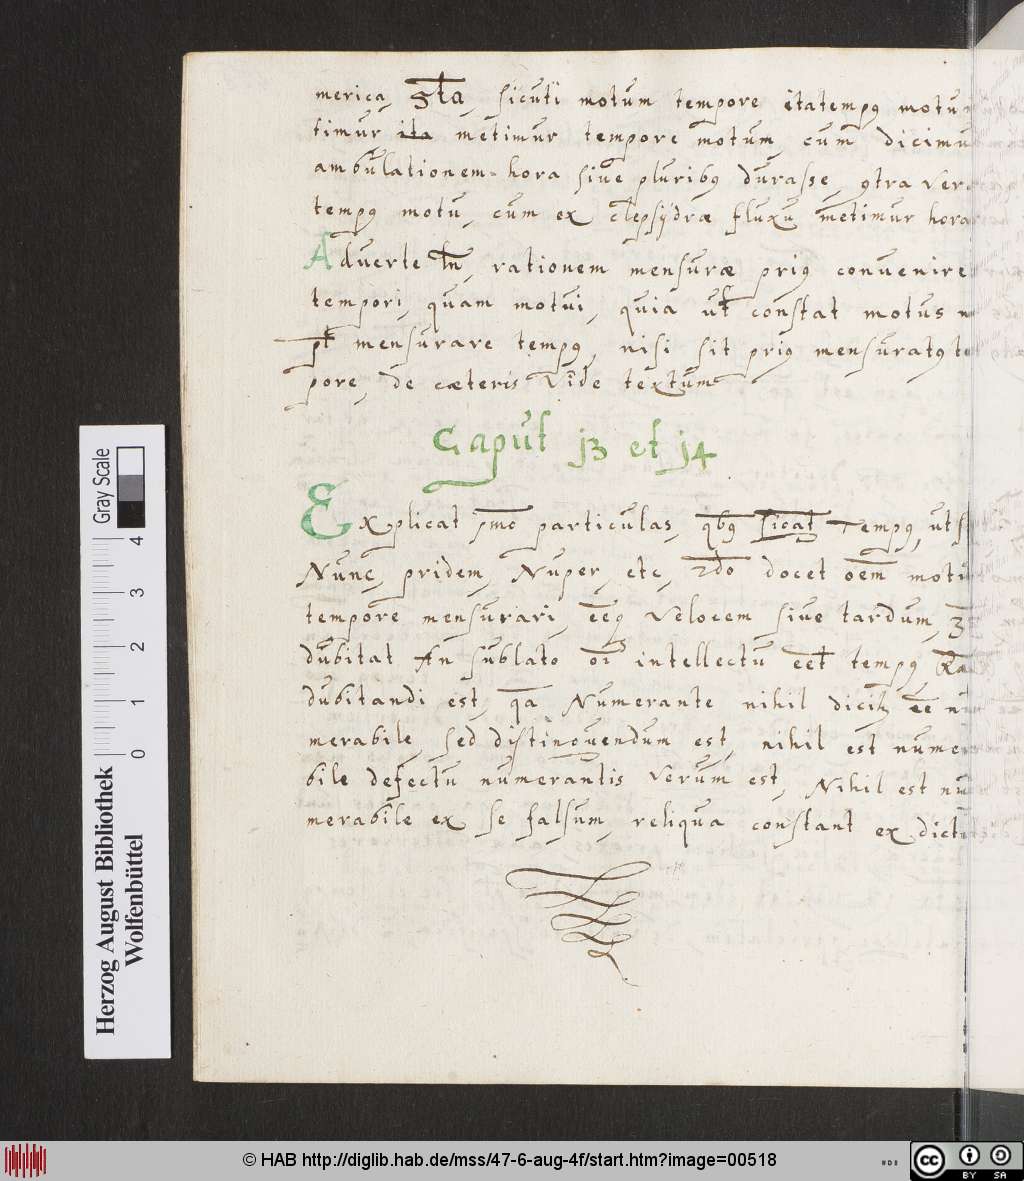 merica, 5ta, sicuti motum tempore ita tempꝰ motu
timur ita metimur tempore motum, cum dicimu
ambulationem hora sive pluribꝰ durasse, ꝯtra vero
tempꝰ motu, cum ex clepsydræ fluxu metimur hora
Adverte tn̄, rationem mensuræ priꝰ convenire
tempori, quam motui, quia ut constat motus n
pt̄ mensurare tempꝰ, nisi sit priꝰ mensuratꝰ te
pore, de cæteris vide textum
Caput j3 et j4
Explicat pmo particulas, qbꝰ sicat Tempꝰ, ut s
Nunc, pridem, Nuper, etc, 2do docet oēm motu
tempore mensurari, eēq velocem sive tardum, 3
dubitat An sublato oī intellectu eēt tempꝰ, Ra
dubitandi est, qa Numerante nihil dicit eē nu
merabile, sed distinquendum est, nihil est numer
bile defectu numerantis verum est, Nihil est nu
merabile ex se falsum, reliqua constant ex dict
Herzog August Bibliothek
Wolfenbüttel
Gray Scale
0 1 2 3 4
© HAB http://diglib.hab.de/mss/47-6-aug-4f/start.htm?image=00518
cc BY SA